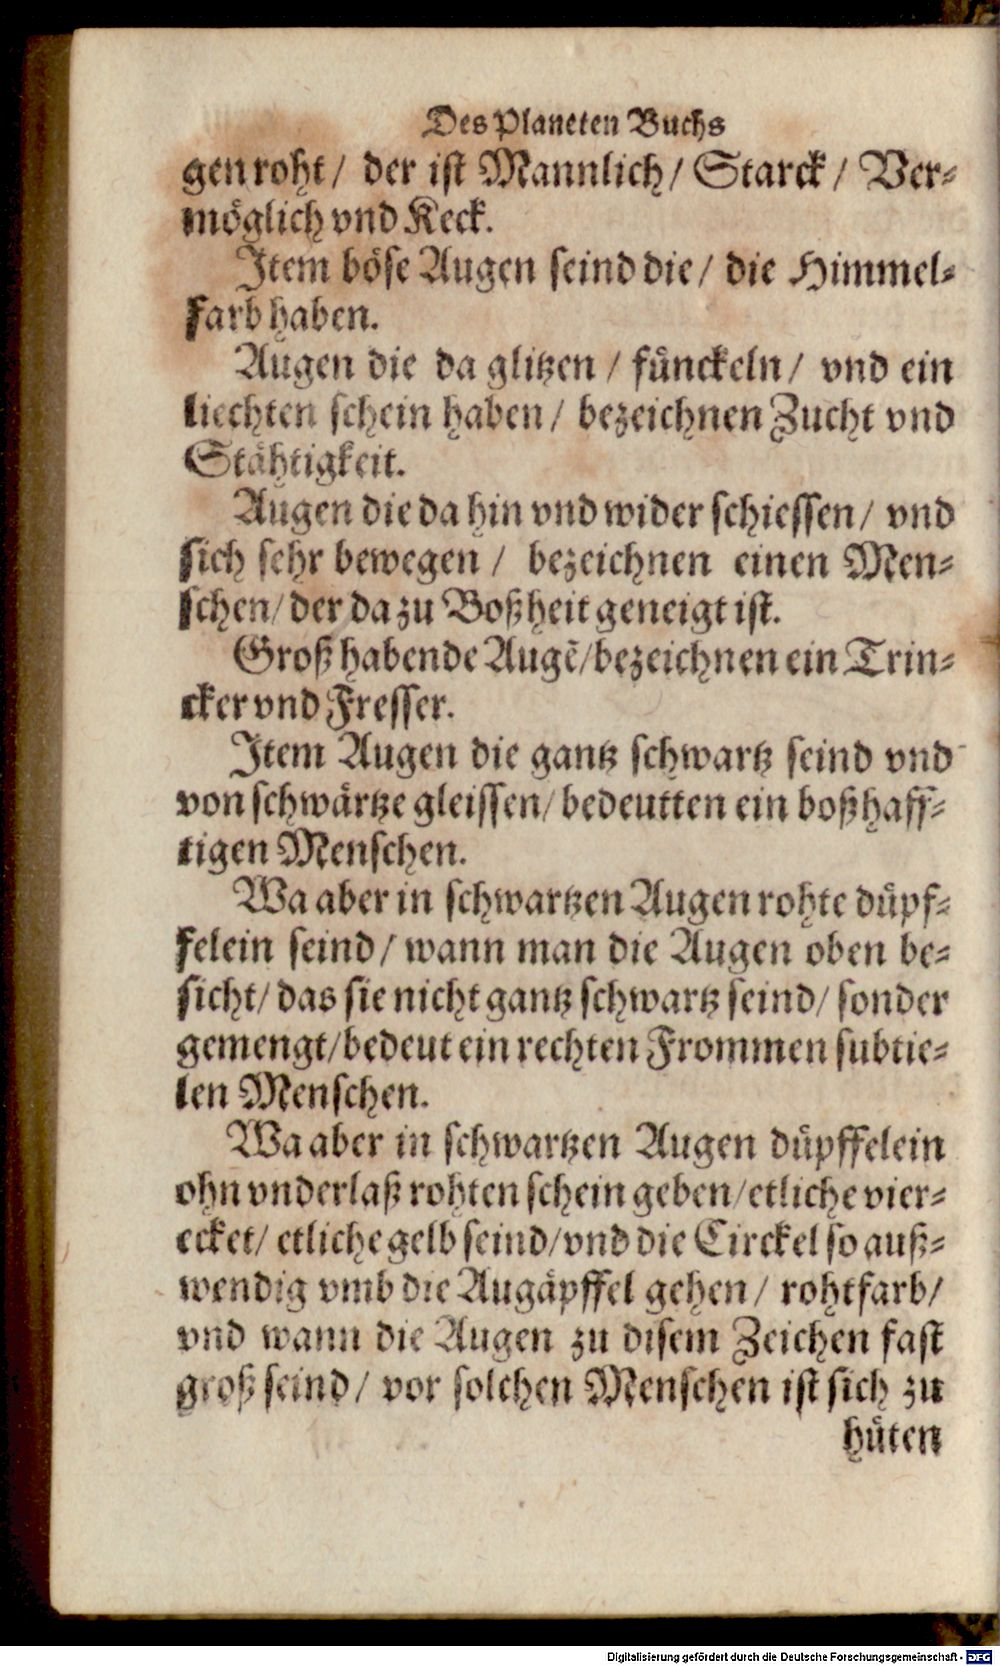 Des Planeten Buchs
gen roht/ der ist Mannlich/ Starck/ Ver-
möglich vnd Keck.
Item böse Augen seind die/ die Himmel-
farb haben.
Augen die da glitzen/ fünckeln/ vnd ein
liechten schein haben/ bezeichnen Zucht vnd
Stähtigkeit.
Augen die da hin vnd wider schiessen/ vnd
sich sehr bewegen/ bezeichnen einen Men-
schen/ der da zu Boßheit geneigt ist.
Groß habende Augẽ/ bezeichnen ein Trin-
cker vnd Fresser.
Item Augen die gantz schwartz seind vnd
von schwärtze gleissen/ bedeutten ein boßhaff-
tigen Menschen.
Wa aber in schwartzen Augen rohte düpf-
felein seind/ wann man die Augen oben be-
sicht/ das sie nicht gantz schwartz seind/ sonder
gemengt/ bedeut ein rechten Frommen subtie-
len Menschen.
Wa aber in schwartzen Augen düpffelein
ohn vnderlaß rohten schein geben/ etliche vier-
ecket/ etliche gelb seind/ vnd die Circkel so auß-
wendig vmb die Augäpffel gehen/ rohtfarb/
vnd wann die Augen zu disem Zeichen fast
groß seind/ vor solchen Menschen ist sich zu
hüten
Digitalisierung gefördert durch die Deutsche Forschungsgemeinschaft - DFG